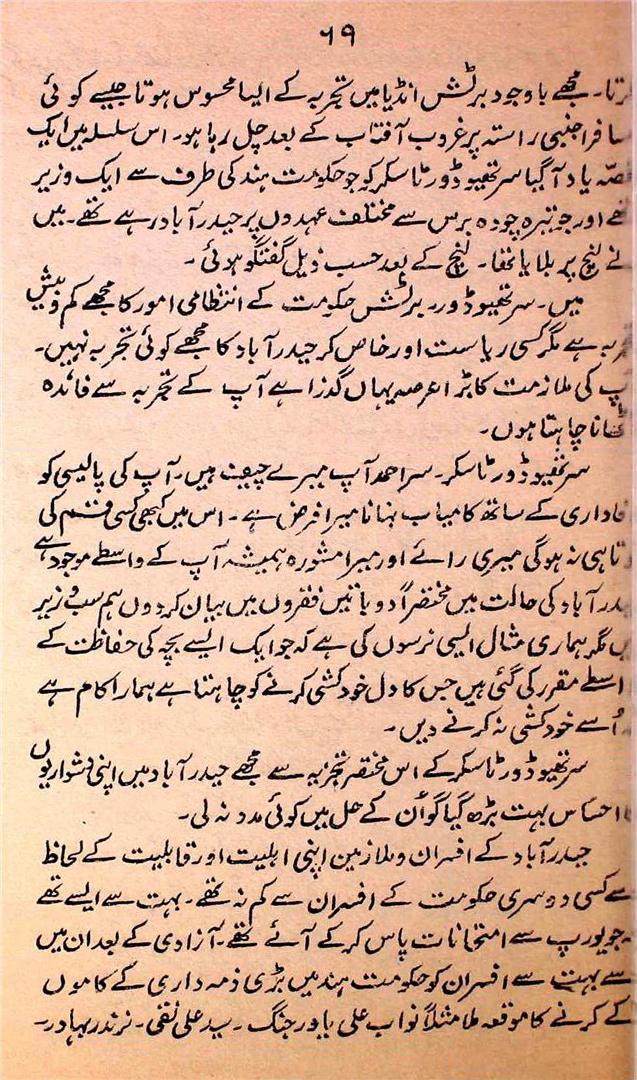 ۶۹
مجھے باوجود برٹش انڈیا میں تجربہ کے ایسا محسوس ہوتا جیسے کوئی
اجنبی راستہ پر غروب آفتاب کے بعد چل رہا ہو۔ اس سلسلہ میں ایک
یاد آگیا سر تھیوڈور ٹاسکر کہ جو حکومت ہند کی طرف سے ایک وزیر
اور جو تیرہ چودہ برس سے مختلف عہدوں پر حیدرآباد رہے تھے۔ میں
نے لنچ پر بلایا تھا۔ لنچ کے بعد حسب ذیل گفتگو ہوئی۔
میں۔ سر تھیوڈور۔ برٹش حکومت کے انتظامی امور کا مجھے کم و بیش
ہے مگر کسی ریاست اور خاص کر حیدرآباد کا مجھے کوئی تجربہ نہیں۔
کی ملازمت کا بڑا عرصہ یہاں گذرا ہے آپ کے تجربہ سے فائدہ
چاہتا ہوں۔
سر تھیوڈور ٹاسکر۔ سر احمد آپ میرے چیف ہیں۔ آپ کی پالیسی کو
کے ساتھ کامیاب بنانا میرا فرض ہے۔ اس میں کبھی کسی قسم کی
نہ ہوگی میری رائے اور میرا مشورہ ہمیشہ آپ کے واسطے موجود ہے
کی حالت میں مختصراً دو باتیں فقروں میں بیان کردوں ہم سب وزیر
مگر ہماری مثال ایسی نرسوں کی ہے کہ جو ایک ایسے بچہ کی حفاظت کے
مقرر کی گئی ہیں جس کا دل خودکشی کرنے کو چاہتا ہے ہمارا کام ہے
اُسے خودکشی نہ کرنے دیں۔
سر تھیوڈور ٹاسکر کے اس مختصر تجزیہ سے مجھے حیدرآباد میں اپنی دشواریوں
احساس بہت بڑھ گیا گو اُن کے حل میں کوئی مدد نہ لی۔
حیدرآباد کے افسران و ملازمین اپنی اہلیت اور قابلیت کے لحاظ
سے کسی دوسری حکومت کے افسران سے کم نہ تھے۔ بہت سے ایسے تھے
جو یورپ سے امتحانات پاس کرکے آئے تھے۔ آزادی کے بعد ان میں
سے بہت سے افسران کو حکومت ہند میں بڑی ذمہ داری کے کاموں
کے کرنے کا موقعہ ملا مثلاً نواب علی یاور جنگ۔ سید علی نقی۔ نرندر بہادر۔